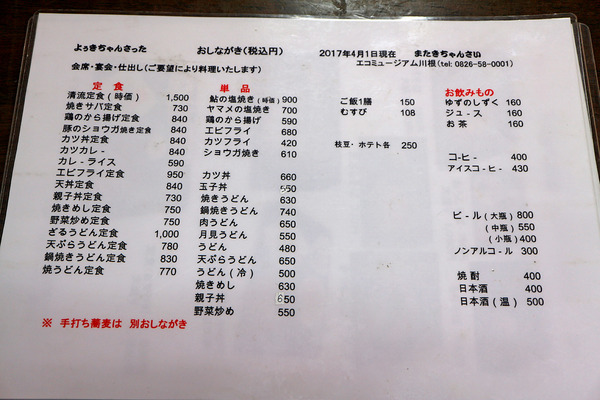 よぅきちゃんさった　おしながき(税込円)　2017年4月1日現在　またきちゃんさい
会席・宴会・仕出し(ご要望により料理いたします)　エコミュージアム川根(tel: 0826-58-0001)
定食
清流定食(時価) 1,500
焼きサバ定食 730
鶏のから揚げ定食 840
豚のショウガ焼き定食 840
カツ丼定食 840
カツカレ- 840
カレ-ライス 590
エビフライ定食 950
天丼定食 840
親子丼定食 730
焼きめし定食 750
野菜炒め定食 750
ざるうどん定食 1,000
天ぷらうどん定食 780
鍋焼きうどん定食 830
焼うどん定食 770
※ 手打ち蕎麦は 別おしながき
単品
鮎の塩焼き(時価) 900
ヤマメの塩焼き 700
鶏のから揚げ 590
エビフライ 680
カツフライ 420
ショウガ焼き 610
カツ丼 660
玉子丼 550
焼きうどん 630
鍋焼きうどん 740
肉うどん 650
月見うどん 550
うどん 480
天ぷらうどん 650
うどん(冷) 500
焼きめし 630
親子丼 650
野菜炒め 550
ご飯1膳 150
むすび 108
枝豆・ポテト各 250
お飲みもの
ゆずのしずく 160
ジュ-ス 160
お茶 160
コ-ヒ- 400
アイスコ-ヒ- 430
ビ-ル(大瓶) 800
(中瓶) 550
(小瓶) 400
ノンアルコ-ル 300
焼酎 400
日本酒 400
日本酒(温) 500